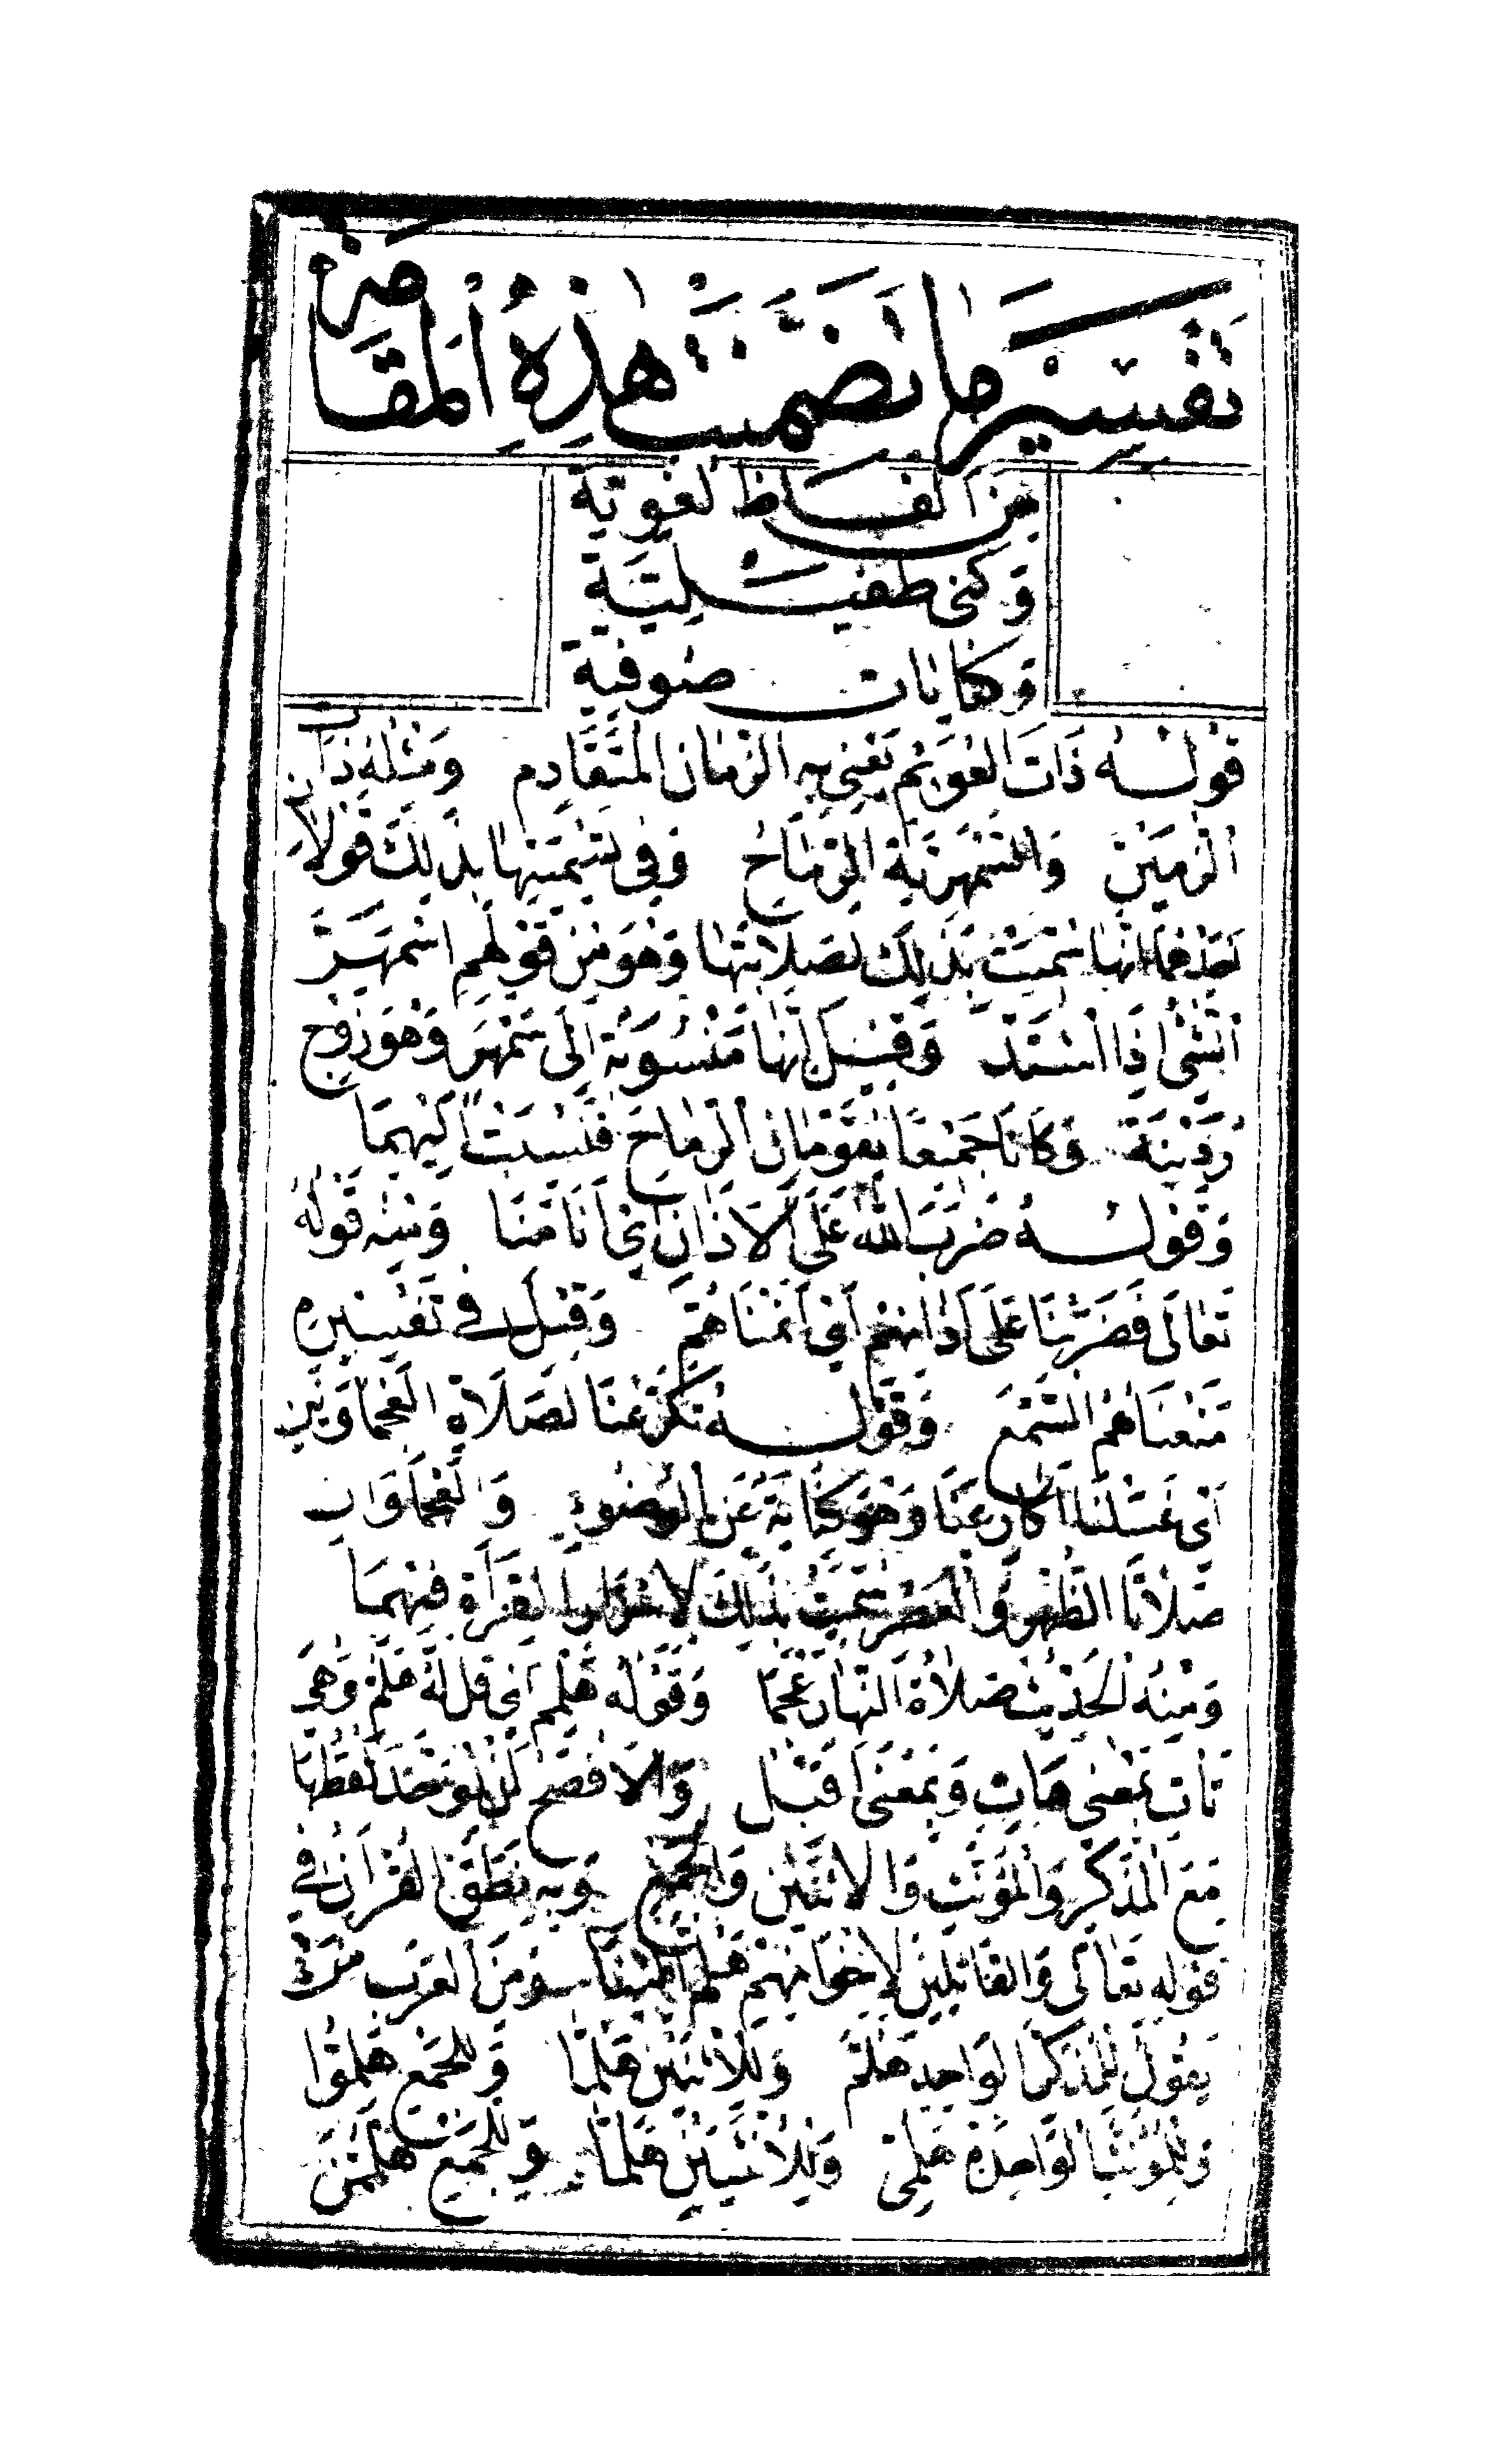 تفسير ما تضمنت هذه المقامة
من ألفاظ لغوية
وكنى طفيلية
وكنايات صوفية
قوله ذات العويم يعني به الزمان المتقادم ومثله ذات
الزمين والسمهرية الرماح وفي تسميتها بذلك قولان
أحدهما أنها سميت بذلك لصلابتها وهو من قولهم اسمهر
الشيء إذا اشتد وقيل إنها منسوبة إلى سمهر وهو زوج
ردينة وكانا جميعا يقومان الرماح فنسبت إليهما
وقوله ضرب الله على الآذان أي أنامنا ومنه قوله
تعالى فضربنا على آذانهم أي أنمناهم وقيل في تفسيره
منعناهم السمع وقوله تكرعنا لصلاة العجماوين
أي غسلنا أكارعنا وهو كناية عن الوضوء والعجماوان
صلاتا الظهر والعصر سميت بذلك لإسرار القراءة فيهما
ومنه الحديث صلاة النهار عجما وقوله هلم أي قل له هلم وهي
تأت بمعنى هات وبمعنى أقبل والأفصح أن يوحد لفظها
مع المذكر والمؤنث والاثنين والجمع وبه نطق القرآن في
قوله تعالى والقائلين لإخوانهم هلم إلينا ومن العرب من
يقول للمذكر الواحد هلم وللاثنين هلما وللجمع هلموا
وللمؤنث الواحدة هلمي وللاثنيين هلما وللجمع هلممن